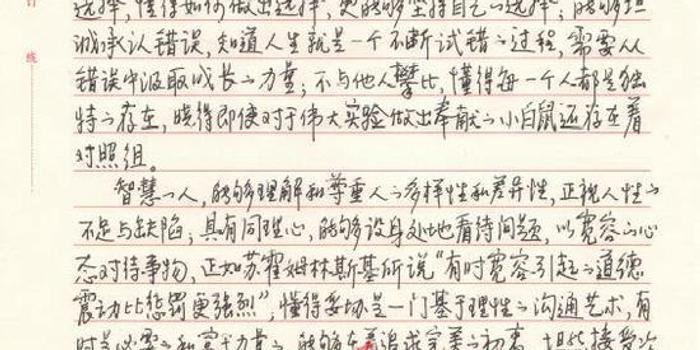 选择，懂得如何做出选择，更能够坚持自己的选择；能够坦
诚承认错误，知道人生就是一个不断试错的过程，需要从
错误中汲取成长的力量；不与他人攀比，懂得每一个人都是独
特的存在，晓得即使对于伟大实验做出奉献的小白鼠还存在着
对照组。
智慧的人，能够理解和尊重人的多样性和差异性，正视人性的
不足与缺陷；具有同理心，能够设身处地看待问题，以宽容的心
态对待事物，正如苏霍姆林斯基所说“有时宽容引起的道德
震动比惩罚更强烈”，懂得妥协是一门基于理性的沟通艺术，有
时是必要的和富于力量的，能够在着追求完善的初衷，坦然接受
订
线